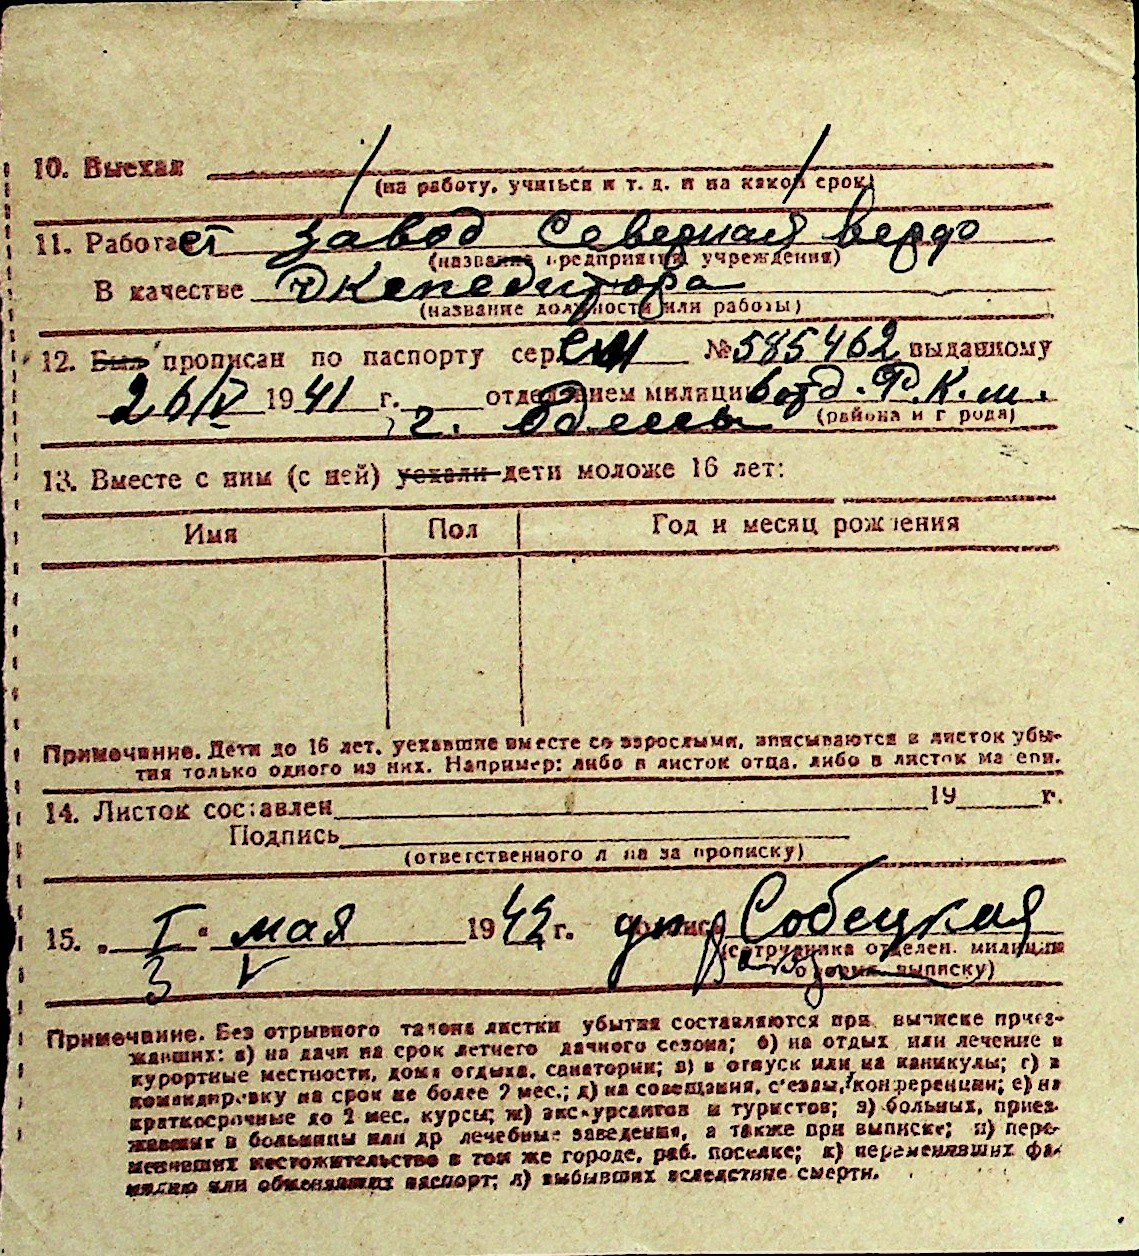 10. Выехал
(на работу, учиться и т. д. и на какой срок)
11. Работает завод Северная Верфь
(название предприятия, учреждения)
В качестве экспедитора
(название должности или работы)
12. Был прописан по паспорту сер. № 585462 выданному
26/V 1941 г. отделением милиции 6 отд. Р.К.М.
г. Одессы (района и города)
13. Вместе с ним (с ней) уехали дети моложе 16 лет:
Имя Пол Год и месяц рождения
Примечание. Дети до 16 лет, уехавшие вместе со взрослыми, вписываются в листок убы-
тия только одного из них. Например: либо в листок отца, либо в листок матери.
14. Листок составлен 19 г.
Подпись
(ответственного лица за прописку)
15. „ I “ мая 1942 г. Подпись Собецкая
(сотрудника отделен. милиции
выписку)
3 V
Примечание. Без отрывного талона листки убытия составляются при выписке приез-
жавших: а) на дачи на срок летнего дачного сезона; б) на отдых или лечение в
курортные местности, дома отдыха, санатории; в) в отпуск или на каникулы; г) в
командировку на срок не более 2 мес.; д) на совещания, с'езды, конференции; е) на
краткосрочные до 2 мес. курсы; ж) экскурсантов и туристов; з) больных, приез-
жавших в больницы или др лечебные заведения, а также при выписке; и) пере-
менивших местожительство в том же городе, раб. поселке; к) переменивших фа-
милию или обменявших паспорт; л) выбывших вследствие смерти.